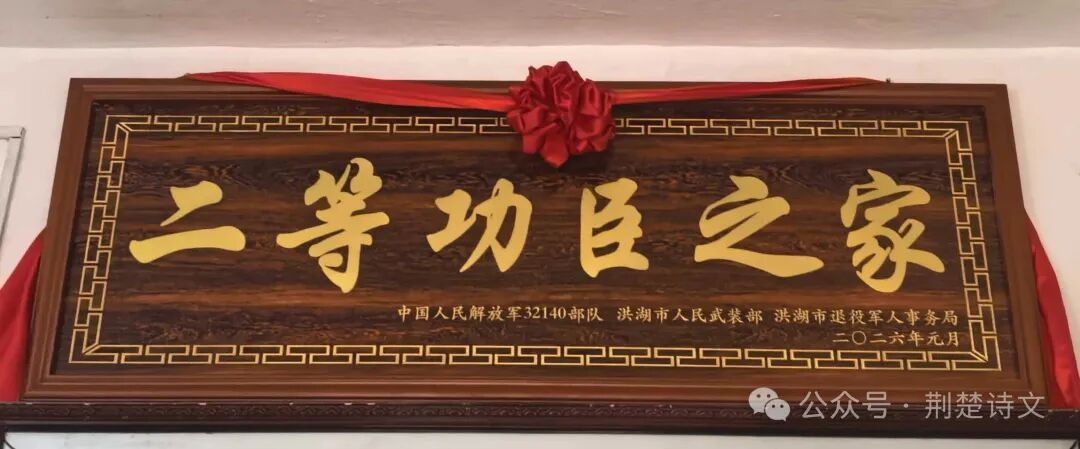 二等功臣之家
中国人民解放军32140部队 洪湖市人民武装部 洪湖市退役军人事务局
二〇二六年元月
公众号·荆楚诗文